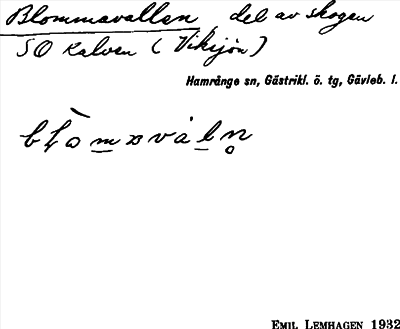 Blommavallen, del av skogen
SO Kalven (Viksjön)
Hamrånge sn, Gästrikl. ö. tg, Gävleb. l.
EMIL LEMHAGEN 1932